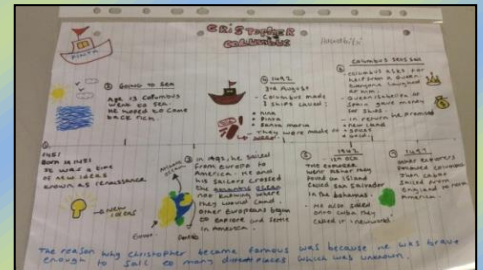 CRISTOPHER
COLUMBUS
PINTA
② Going to sea
Age 13 Columbus
went to sea.
He hoped to come
back rich.
④ 1492
3rd August
- Columbus made
3 ships called:
• Nina
• Pinta
• Santa Maria
- They were made of
wood.
Columbus sets sail
- Columbus asks for
help from a Queen
everyone laughed
at him.
- Queen Isabella of
Spain gave money
for ships.
- In return he promised
• new land
• spices
• gold.
1451
Born in 1451
It was a time
of new ideas
known as renaissance
NEW
IDEAS
③ In 1492, he sailed
from Europe to
America. He and
his sailors crossed
the Atlantic Ocean
not knowing where
they would land.
Other Europeans began
to explore and settle
in America.
Atlantic
Ocean
Europe
1492
12th Oct
The explorer
were before they
found an island
called San Salvador
in the Bahamas.
- He also sailed
onto Cuba. They
called it "new world".
1497
Other explorers
followed Columbus.
Then Cabot
sailed from
England to North
America.
The reason why Christopher became famous was because he was brave
enough to sail to many different places which was unknown.